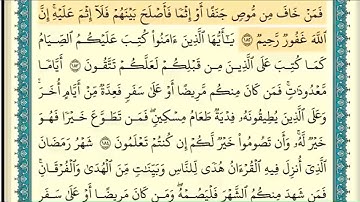 فَمَنْ خَافَ مِن مُّوصٍ جَنَفًا أَوْ إِثْمًا فَأَصْلَحَ بَيْنَهُمْ فَلَآ إِثْمَ عَلَيْهِ ۚ إِنَّ
ٱللَّهَ غَفُورٌ رَّحِيمٌ ١٨٢ يَـٰٓأَيُّهَا ٱلَّذِينَ ءَامَنُوا۟ كُتِبَ عَلَيْكُمُ ٱلصِّيَامُ
كَمَا كُتِبَ عَلَى ٱلَّذِينَ مِن قَبْلِكُمْ لَعَلَّكُمْ تَتَّقُونَ ١٨٣ أَيَّامًا
مَّعْدُودَٰتٍ ۚ فَمَن كَانَ مِنكُم مَّرِيضًا أَوْ عَلَىٰ سَفَرٍ فَعِدَّةٌ مِّنْ أَيَّامٍ أُخَرَ ۚ
وَعَلَى ٱلَّذِينَ يُطِيقُونَهُۥ فِدْيَةٌ طَعَامُ مِسْكِينٍ ۖ فَمَن تَطَوَّعَ خَيْرًا فَهُوَ
خَيْرٌ لَّهُۥ ۚ وَأَن تَصُومُوا۟ خَيْرٌ لَّكُمْ ۖ إِن كُنتُمْ تَعْلَمُونَ ١٨٤ شَهْرُ رَمَضَانَ
ٱلَّذِىٓ أُنزِلَ فِيهِ ٱلْقُرْءَانُ هُدًى لِّلنَّاسِ وَبَيِّنَـٰتٍ مِّنَ ٱلْهُدَىٰ وَٱلْفُرْقَانِ ۚ
فَمَن شَهِدَ مِنكُمُ ٱلشَّهْرَ فَلْيَصُمْهُ ۖ وَمَن كَانَ مَرِيضًا أَوْ عَلَىٰ سَفَرٍ